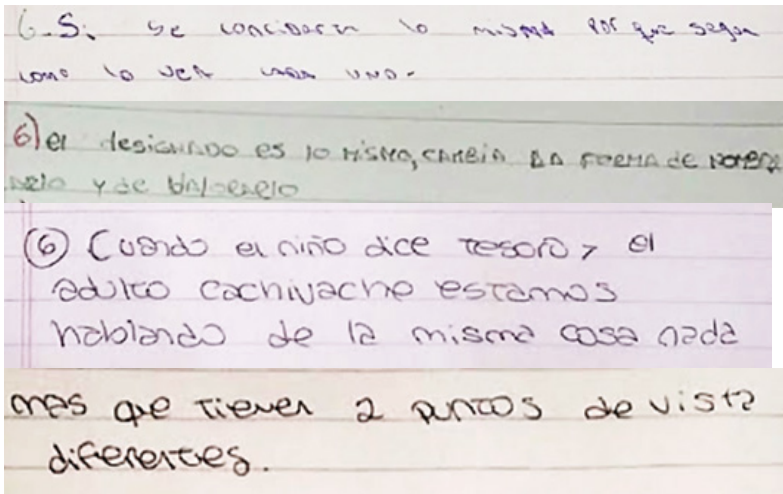 6. Si se concideran lo mismo por que segun
como lo vea cada uno.
6) el designado es lo mismo, cambia la forma de nombra
rlo y de
⑥ Cuando el niño dice tesoro y el
adulto cachivache estamos
hablando de la misma cosa nada
mas que tienen 2 puntos de vista
diferentes.